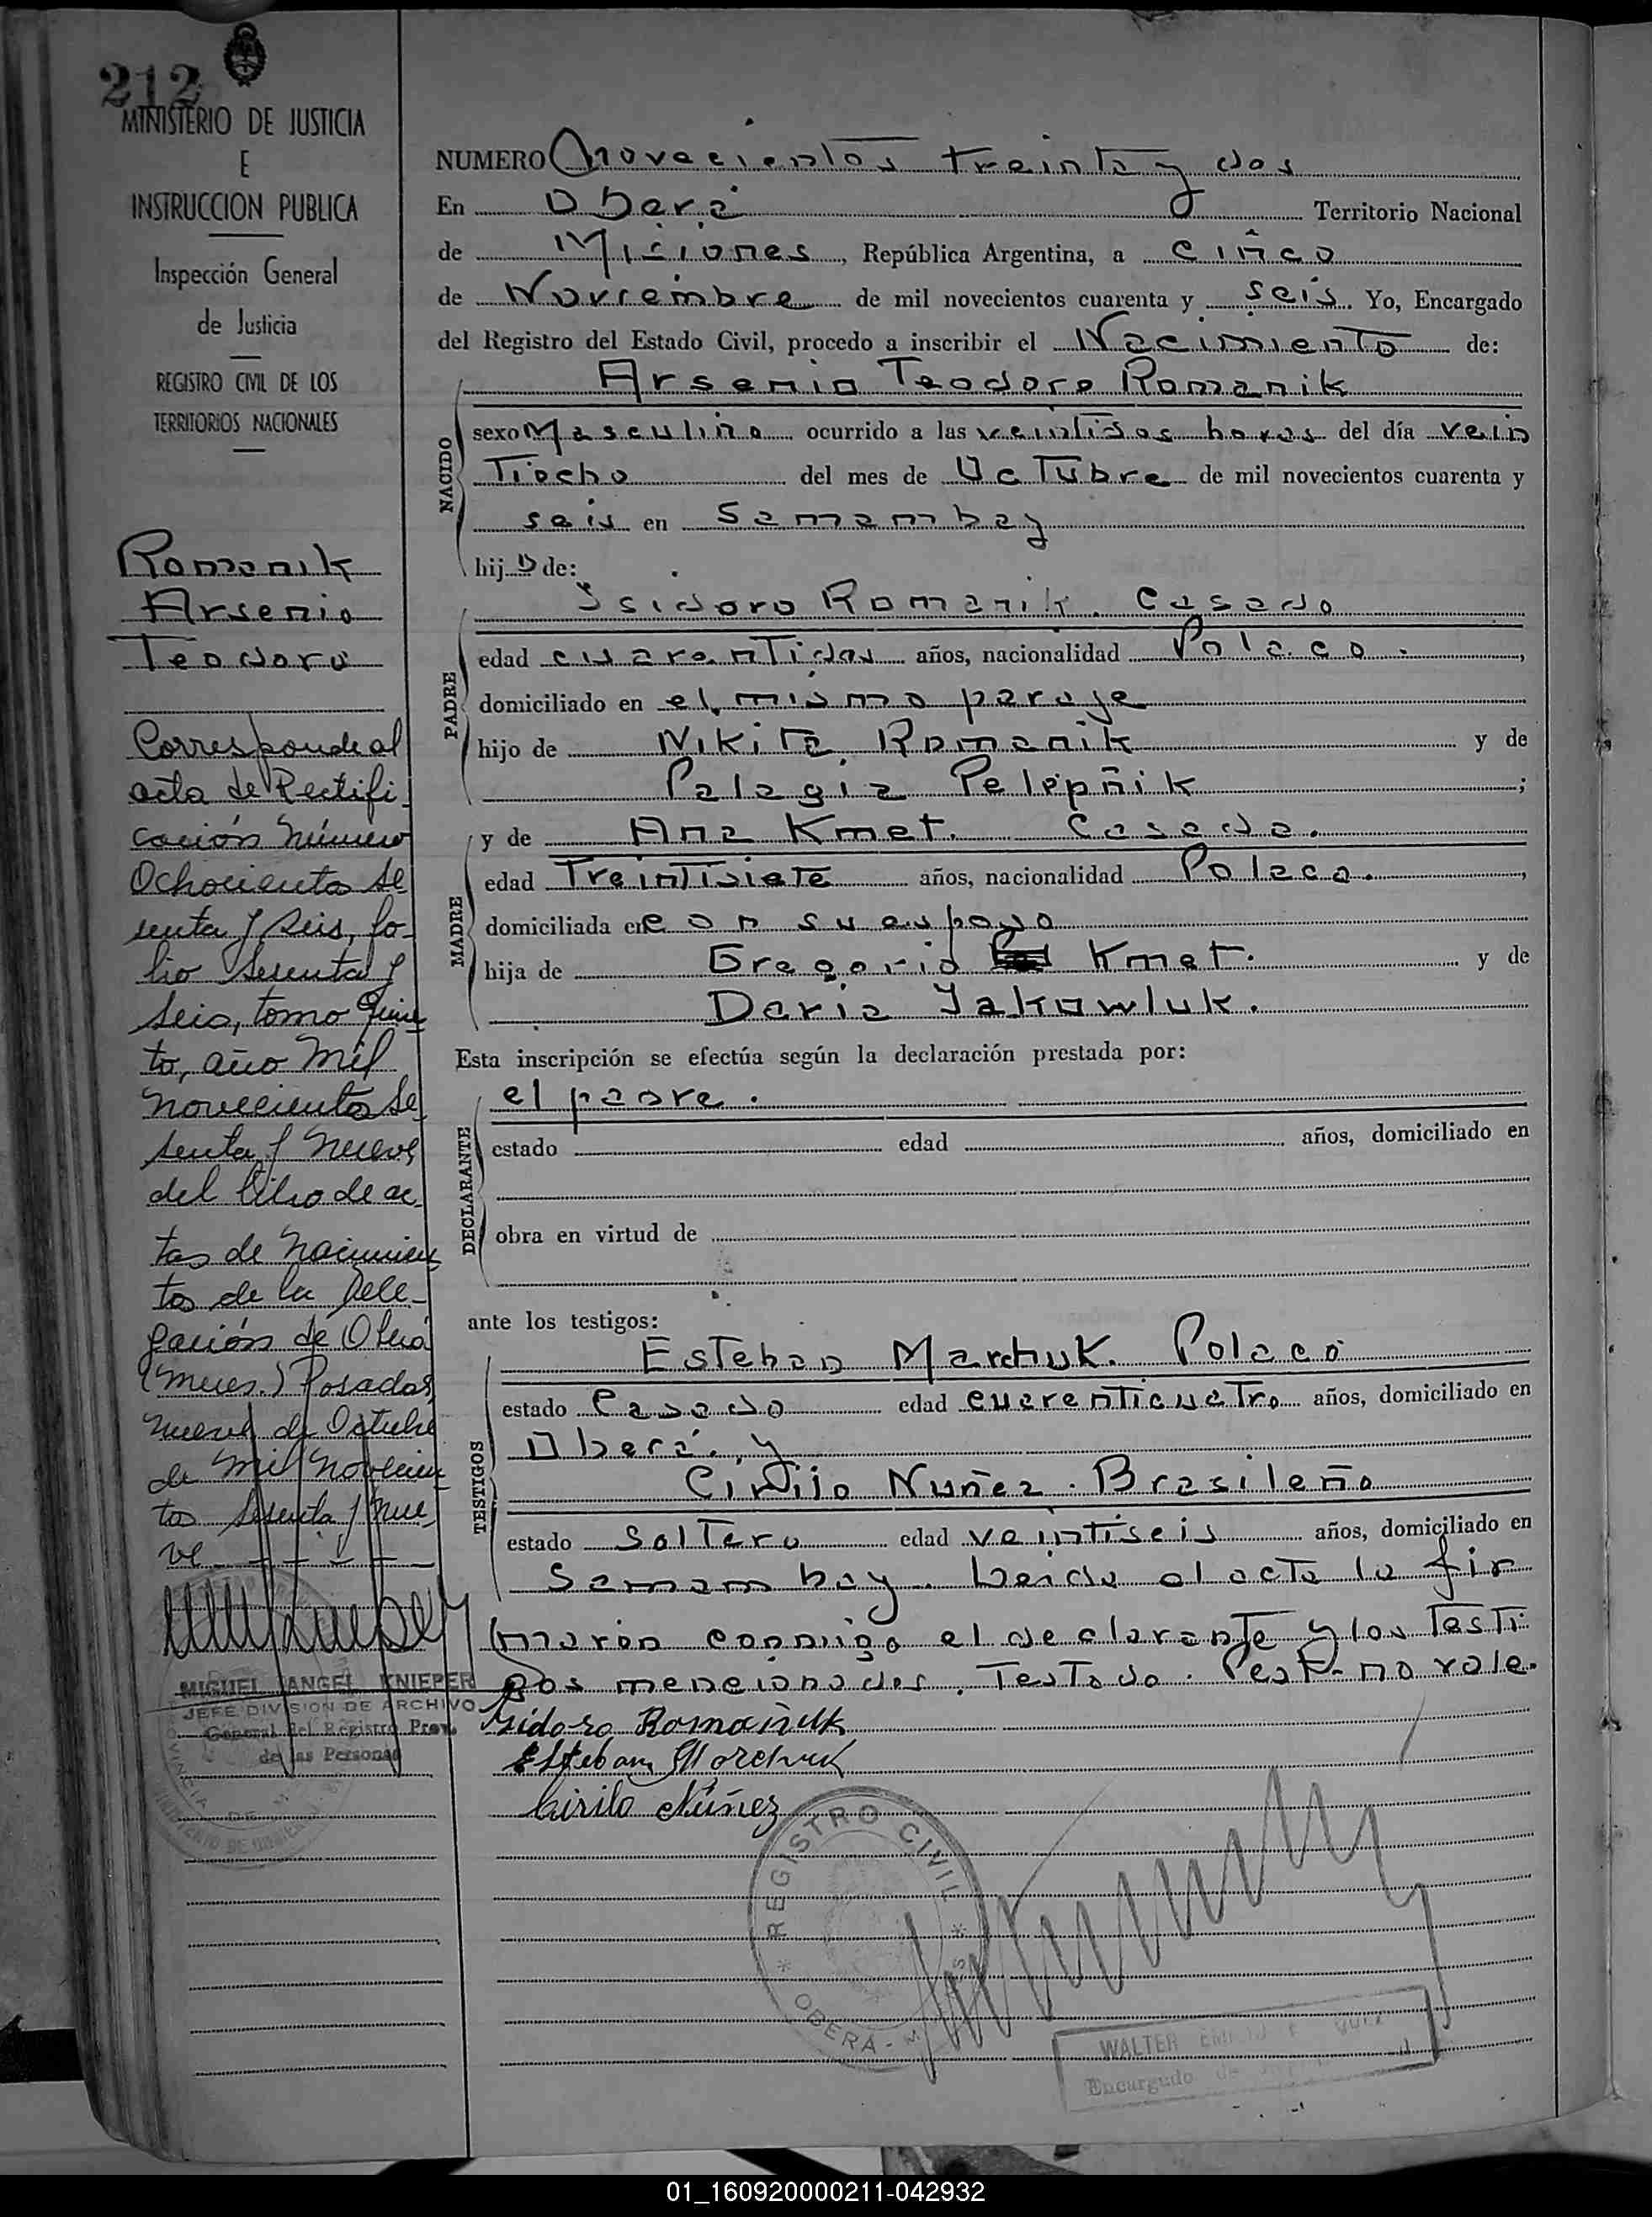 212
MINISTERIO DE JUSTICIA
E
INSTRUCCION PUBLICA
Inspección General
de Justicia
REGISTRO CIVIL DE LOS
TERRITORIOS NACIONALES
Romanik
Arsenio
Teodoro
Corresponde al
acta de Rectifi-
cación número
Ochocientos se
senta y seis, fo-
lio sesenta y
seis, tomo Quin
to, año mil
novecientos se
senta y nueve
del libro de ac
tas de nacimien
tos de la Dele-
gación de Oberá
(Mnes.) Posadas,
nueve de Octubre
de mil novecien
tos sesenta y nue
ve
MIGUEL ANGEL KNIEPER
JEFE DIVISION DE ARCHIVO
General del Registro Prov.
de las Personas
NUMERO novecientos treinta y dos
En Oberá Territorio Nacional
de Miciones, República Argentina, a cinco
de Noviembre de mil novecientos cuarenta y seis. Yo, Encargado
del Registro del Estado Civil, procedo a inscribir el Nacimiento de:
Arsenio Teodoro Romanik
NACIDO
sexo Masculino ocurrido a las veintidos horas del día vein
tiocho del mes de Octubre de mil novecientos cuarenta y
seis en Samambay
hijo de:
PADRE
Isidoro Romanik. Casado
edad cuarentidos años, nacionalidad Polaco.,
domiciliado en el mismo paraje
hijo de Nikita Romanik y de
Palagia Pelepñik;
MADRE
y de Ana Kmet. Casada.
edad Treintisiete años, nacionalidad Polaca.,
domiciliada en con su esposo
hija de Gregorio Kmet. y de
Daria Jakowluk.
Esta inscripción se efectúa según la declaración prestada por:
DECLARANTE
el padre.
estado edad años, domiciliado en
obra en virtud de
ante los testigos:
TESTIGOS
Esteban Marchuk. Polaco
estado Casado edad cuarenticuatro años, domiciliado en
Oberá. y
Cirilo Nuñez. Brasileño
estado Soltero edad veintiseis años, domiciliado en
Samambay. Leida el acta la fir
maron conmigo el declarante y los testi
gos mencionados. Testado. Pest- no vale.
Isidoro Romañuk
Esteban Marchuk
Cirilo Núñez
REGISTRO CIVIL
OBERÁ -
WALTER
Encargado
01_160920000211-042932